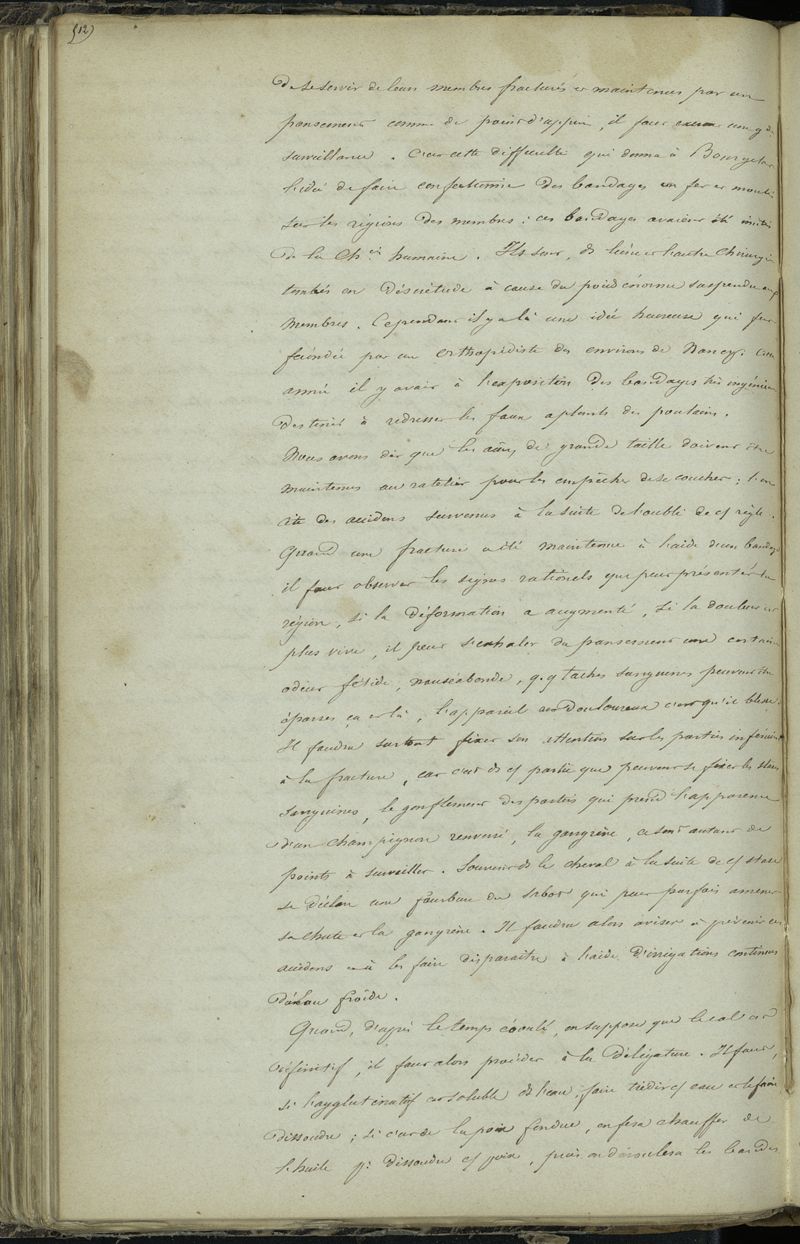 (12)
de se servir de leurs membres fracturés et maintenus par un
pansement comme de point d'appui, il faut une gde
surveillance. C'est cette difficulté qui donna à Bourgelat
l'idée de faire confectionner des bandages en fer et moulés
sur les régions des membres : ces bandages avaient été imités
de la Ch.ie humaine. Ils sont, ds l'une et l'autre chirurgie
tombés en désuétude à cause du poids énorme suspendu aux
membres. Cependant il y a là une idée heureuse qui fut
fécondée par un orthopédiste des environs de Nancy. Cette
année il y avait à l'exposition des bandages très ingénieux
destinés à redresser les faux aplombs des poulains.
Nous avons dit que les aux de grande taille doivent être
maintenus au ratelier pour les empêcher de se coucher ; l'on
cite des accidens survenus à la suite de l'oubli de cj règle.
Quand une fracture a été maintenue à l'aide d'un bandage
il faut observer les signes rationels que peut présenter la
région, si la déformation a augmenté, si la douleur est
plus vive, il peut s'exhaler du pansement une certaine
odeur fétide, nauséabonde, q.q taches sanguines peuvent être
éparses çà et là, l'appareil est douloureux c'est qu'il blesse.
Il faudra surtout fixer son attention sur les parties inférieures
à la fracture, car c'est ds cj partie que peuvent se fixer les stases
sanguines, le gonflement des parties qui prend l'apparence
d'un champignon renversé, la gangrène, ce sont autant de
points à surveiller. Souvent ds le cheval à la suite de cj stase
se déclare une fourbure du sabot qui peut parfois amener
sa chute et la gangrène. Il faudra alors aviser à prévenir ces
accidens et à les faire disparaître à l'aide d'irrigations continues
d'eau froide.
Quand, d'après le temps écoulé, on suppose que le cal est
définitif, il faut alors procéder à la déligature. Il faut,
si l'agglutinatif est soluble ds l'eau, faire tiédir cj eau et le faire
dissoudre ; si c'est de la poix fondue, on fera chauffer de
l'huile pr dissoudre cj poix, puis on déroulera les bandes